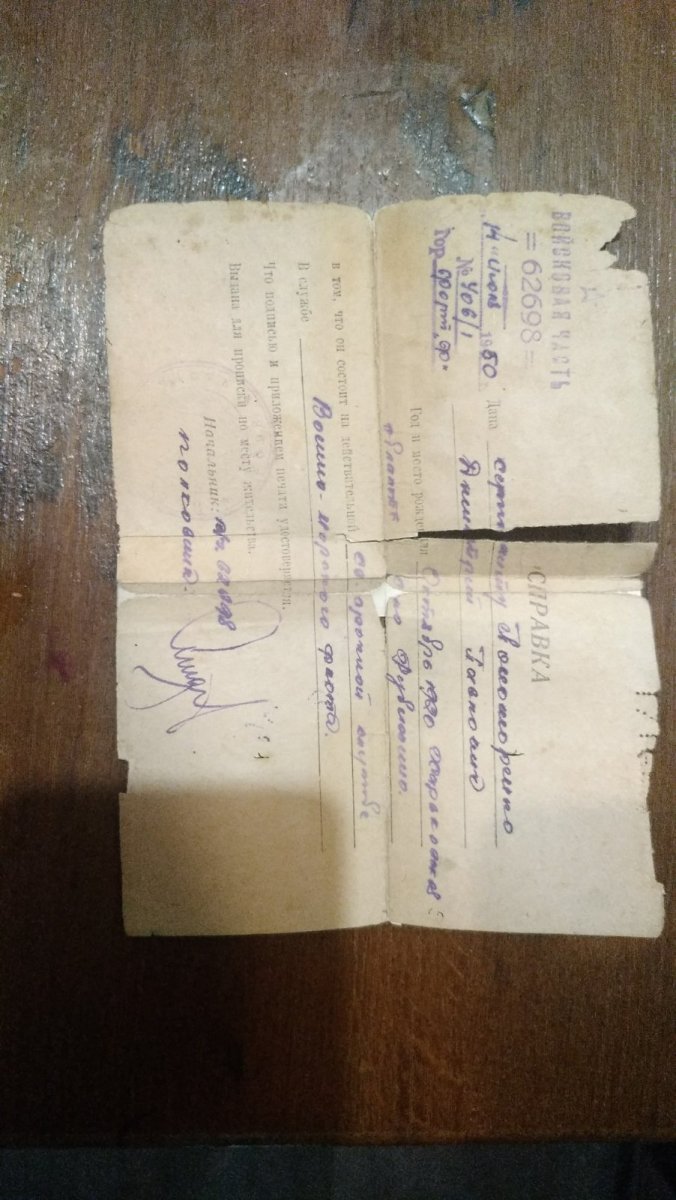 ВОЙСКОВАЯ ЧАСТЬ
= 62698 =
14 июля 1950
№ 406/1
Гор. форт „Ф"
СПРАВКА
Дана сержанту
Дмитрий Павлович
Год и место рождения Октябрь 1920 Харьковская
область село
в том, что он состоит на действительной сверхсрочной службе
В службе Военно-морского флота.
Что подписью и приложением печати удостоверяется.
Выдана для прописки по месту жительства.
Начальник: в/ч 62698
полковник.